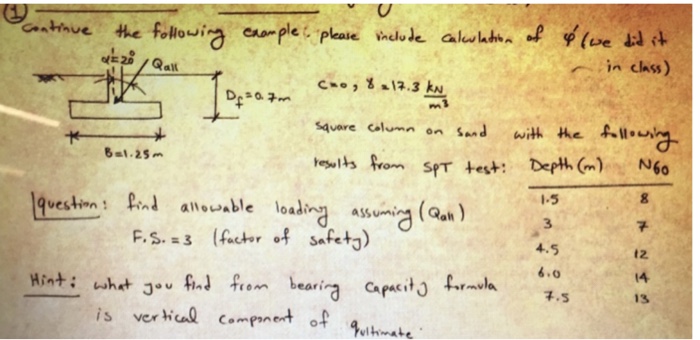 ①
Continue the following example: please include calculation of φ' (we did it
in class)
α=20° Qall
Df=0.7m
C=0, γ=17.3 kN/m³
Square column on sand with the following
B=1.25m
results from SPT test: Depth (m) N60
1.5 8
question: find allowable loading assuming (Qall)
3 7
F.S. = 3 (factor of safety)
4.5 12
6.0 14
Hint: what you find from bearing capacity formula
7.5 13
is vertical component of qultimate.